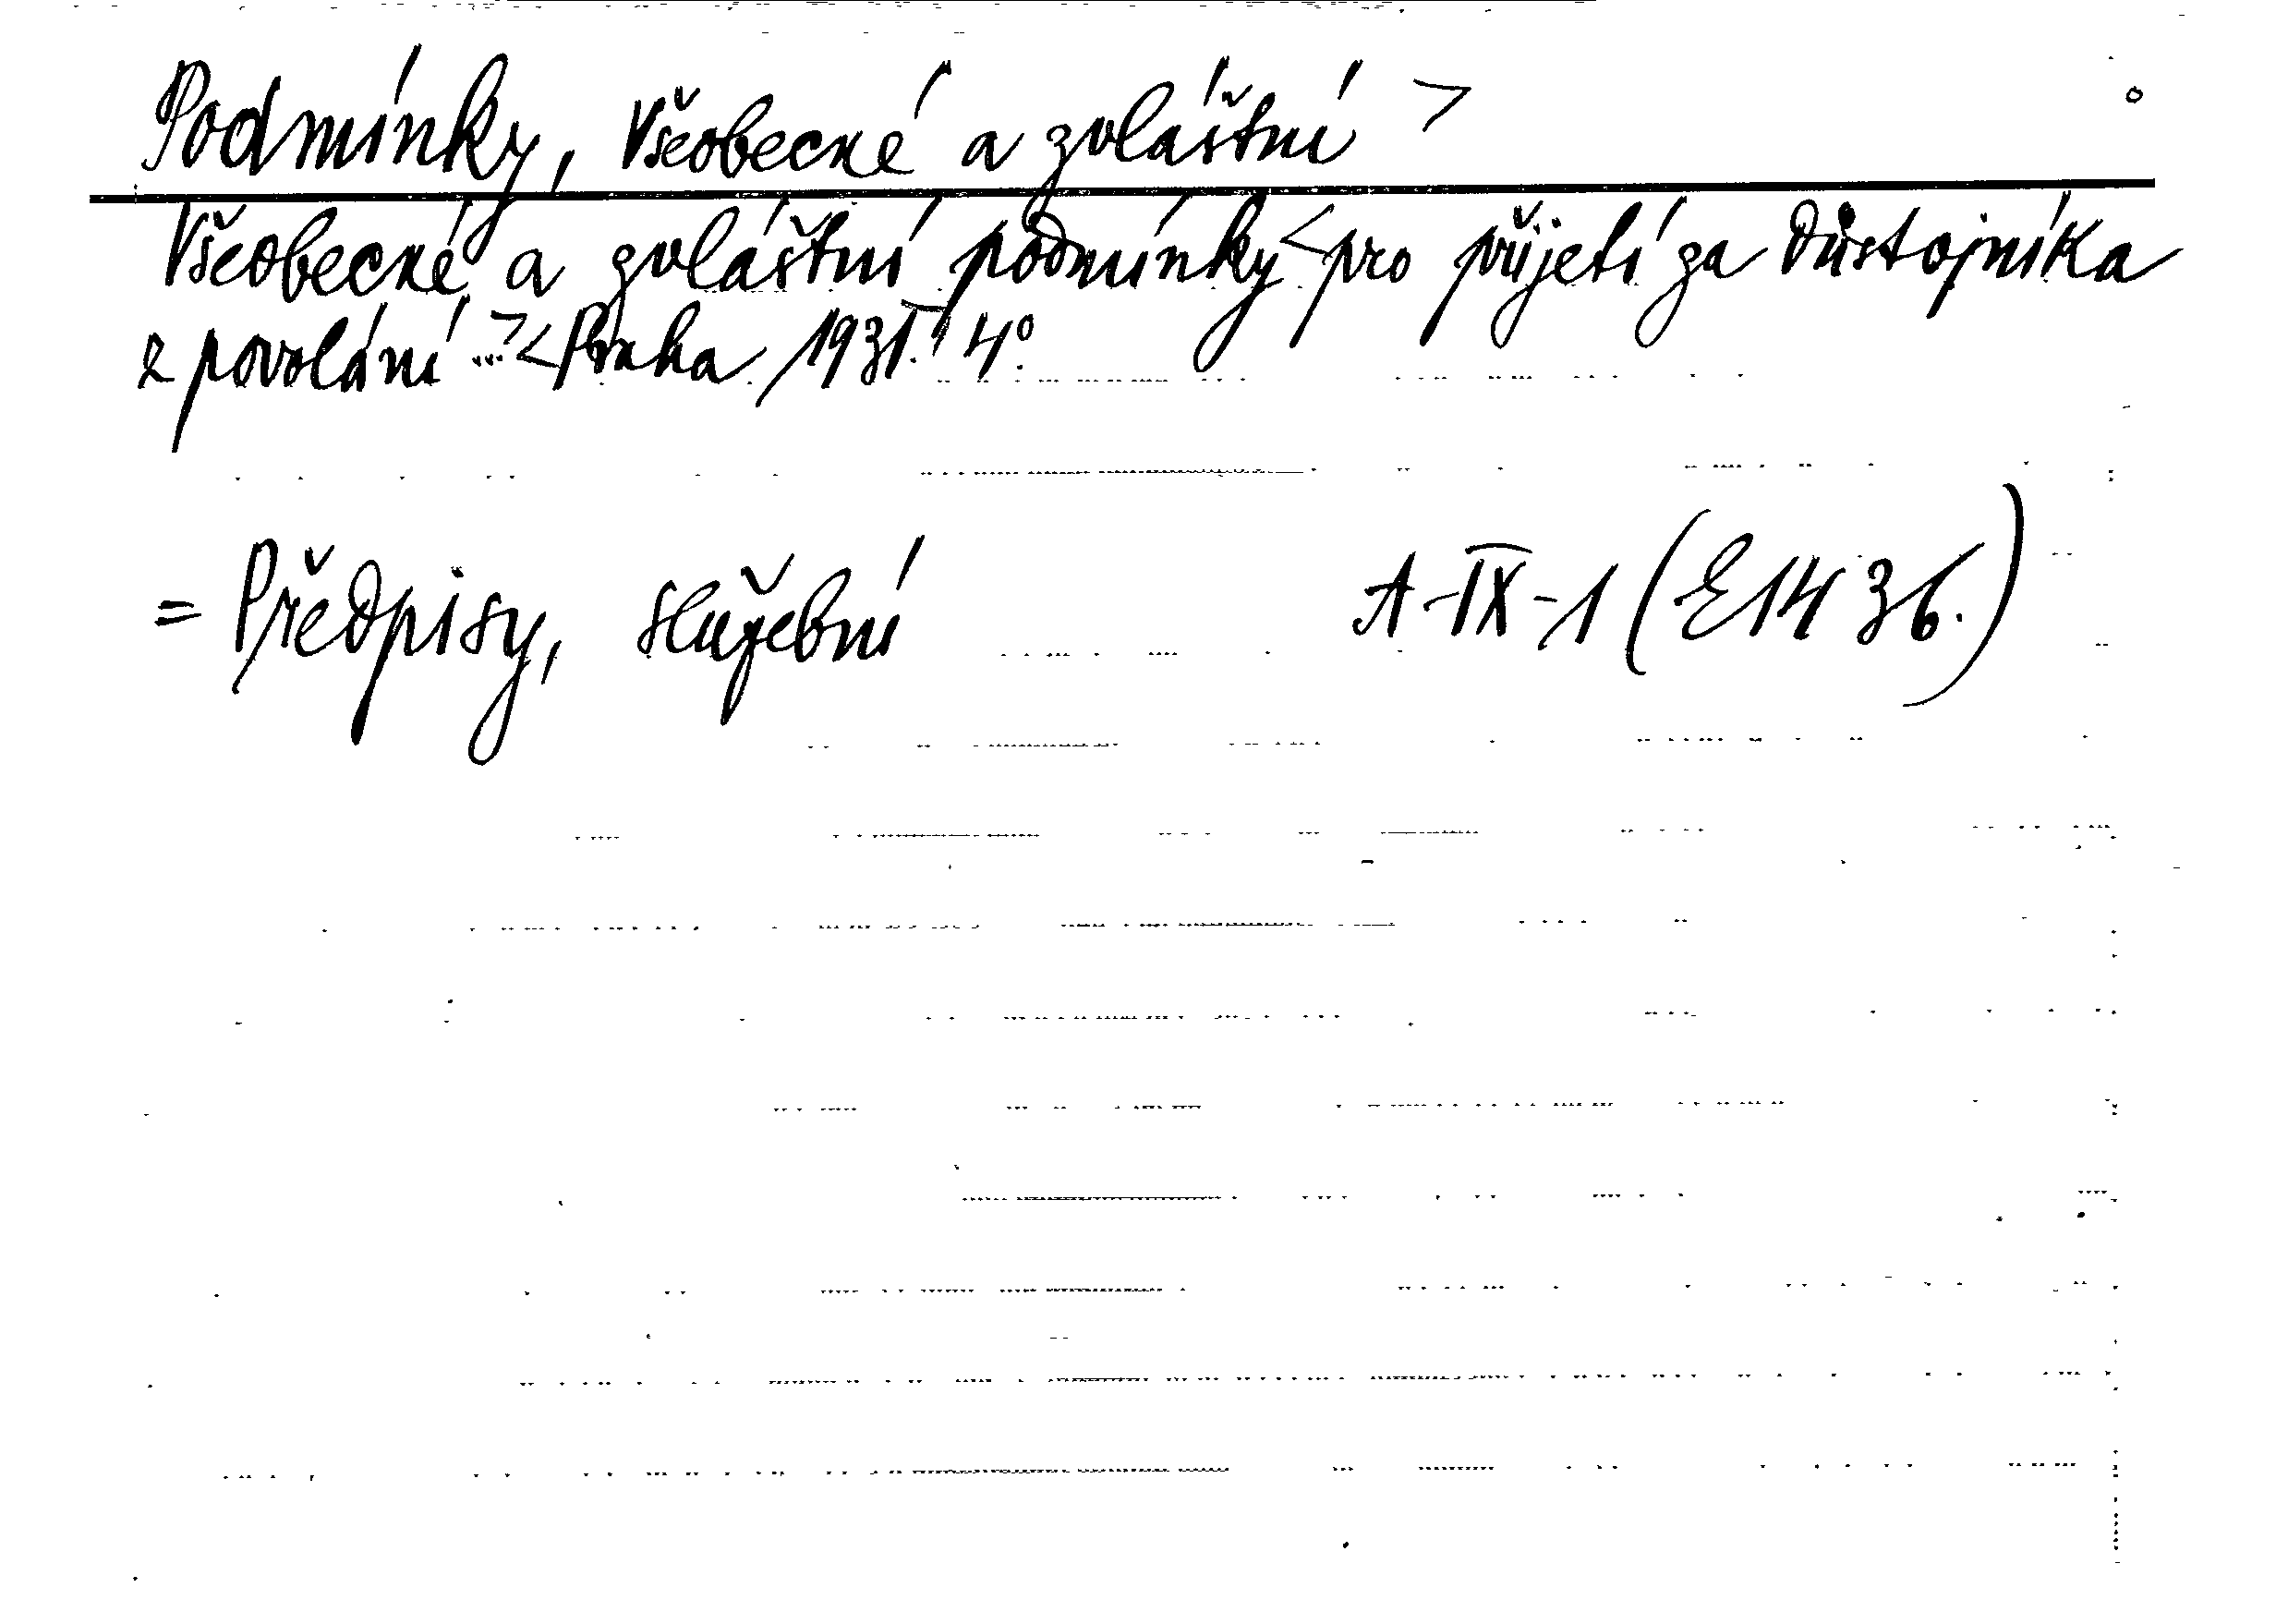 Podmínky, Všeobecné a zvláštní >
Všeobecné a zvláštní podmínky < pro přijetí za důstojníka
z povolání ... > < Praha, 1931. 4°.
= Předpisy, služební A-IX-1 (E1436.)